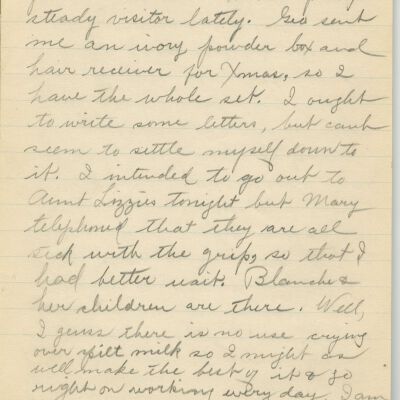 steady visitor lately. Geo sent
me an ivory powder box and
hair receiver for Xmas, so I
have the whole set. I ought
to write some letters, but can't
seem to settle myself down to
it. I intended to go out to
Aunt Lizzies tonight but Mary
telephoned that they are all
sick with the grip, so that I
had better wait. Blanche &
her children are there. Well,
I guess there is no use crying
over spilt milk so I might as
well make the best of it & go
right on working every day. I am